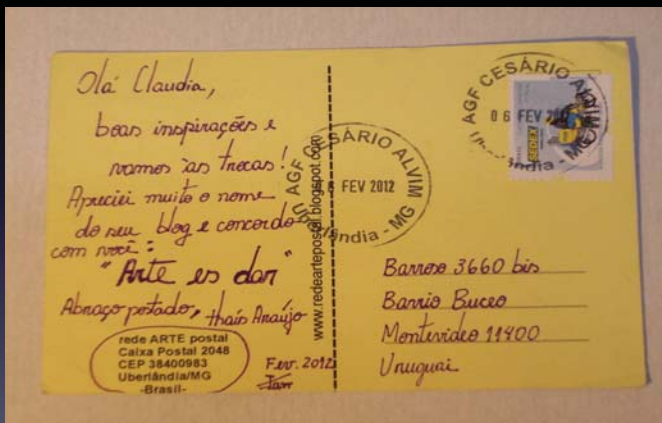 Olá Claudia,
boas inspirações e
vamos às trocas!
Apreciei muito o nome
do seu blog e concordo
com você:
"Arte es dar"
Abraço postado, thaís Araújo
rede ARTE postal
Caixa Postal 2048
CEP 38400983
Uberlândia/MG
-Brasil-
Fev. 2012
Jan
www.redeartepostal.blogspot.com
AGF CESÁRIO ALVIM
06 FEV 2012
Uberlândia - MG
AGF CESÁRIO ALVIM
06 FEV 2012
Uberlândia - MG
SEDEX
Barroso 3660 bis
Barrio Buceo
Montevideo 11400
Uruguai